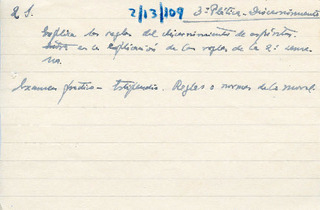 2 S. 2/13/109 3ª Plática - Discernimiento
Explica las reglas del discernimiento de espíritus.
en la explicación de las reglas de la 2ª sema-
na.
Examen práctico - Reglas o normas de la moral.